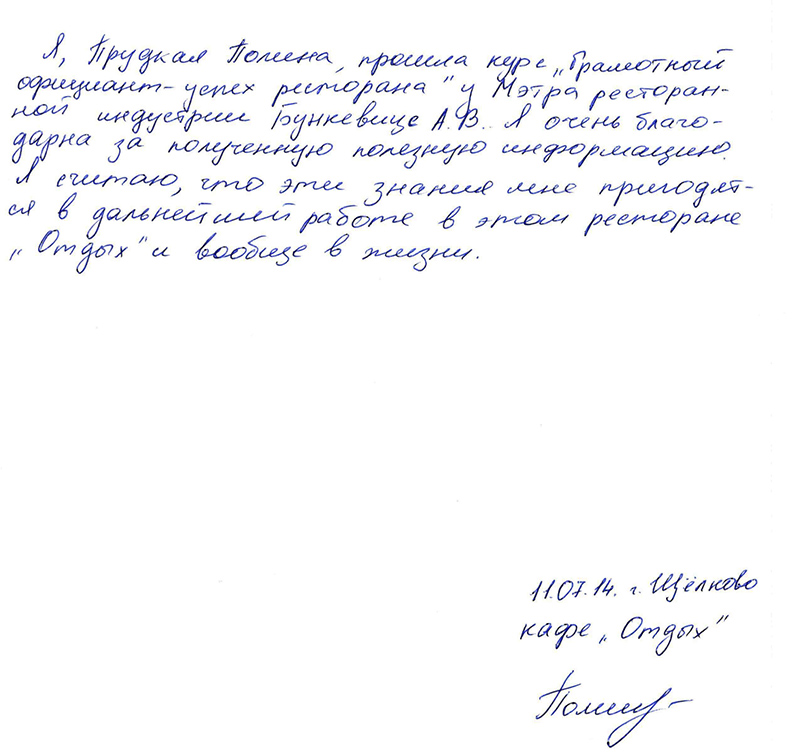 Я, Прудкая Полина, прошла курс „Грамотный
официант-успех ресторана" у Мэтра ресторан-
ной индустрии Бункевище А.В.. Я очень благо-
дарна за полученную полезную информацию.
Я считаю, что эти знания мне пригодят-
ся в дальнейшей работе в этом ресторане
„Отдых" и вообще в жизни.
11.07.14. г. Щёлково
кафе „Отдых"